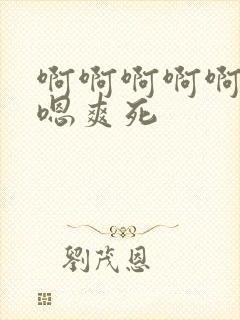 啊啊啊啊啊
嗯爽死
劉茂恩